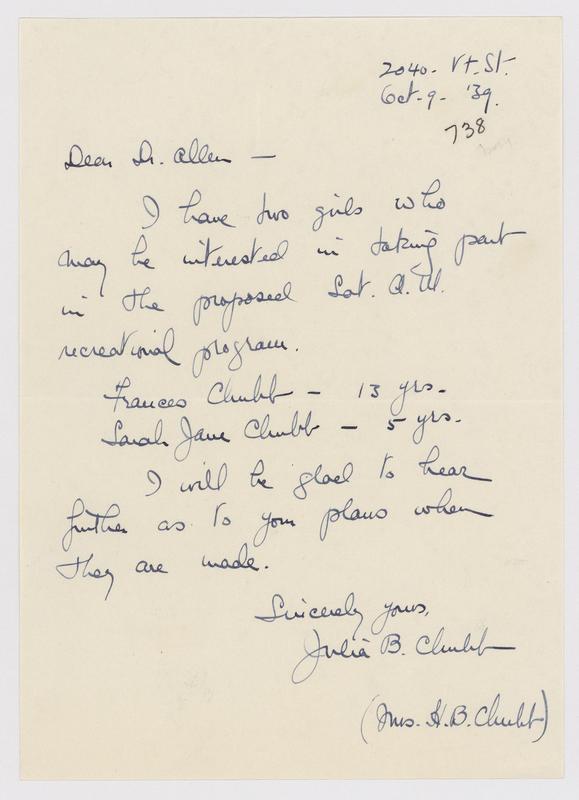 2040 - Vt. St.
Oct - 9 - '39.
738
Dear Dr. Allen —
I have two girls who
may be interested in taking part
in the proposed Sat. A.M.
recreational program.
Frances Chubb - 13 yrs.
Sarah Jane Chubb - 5 yrs.
I will be glad to hear
further as to your plans when
they are made.
Sincerely yours,
Julia B. Chubb
(Mrs. H. B. Chubb)